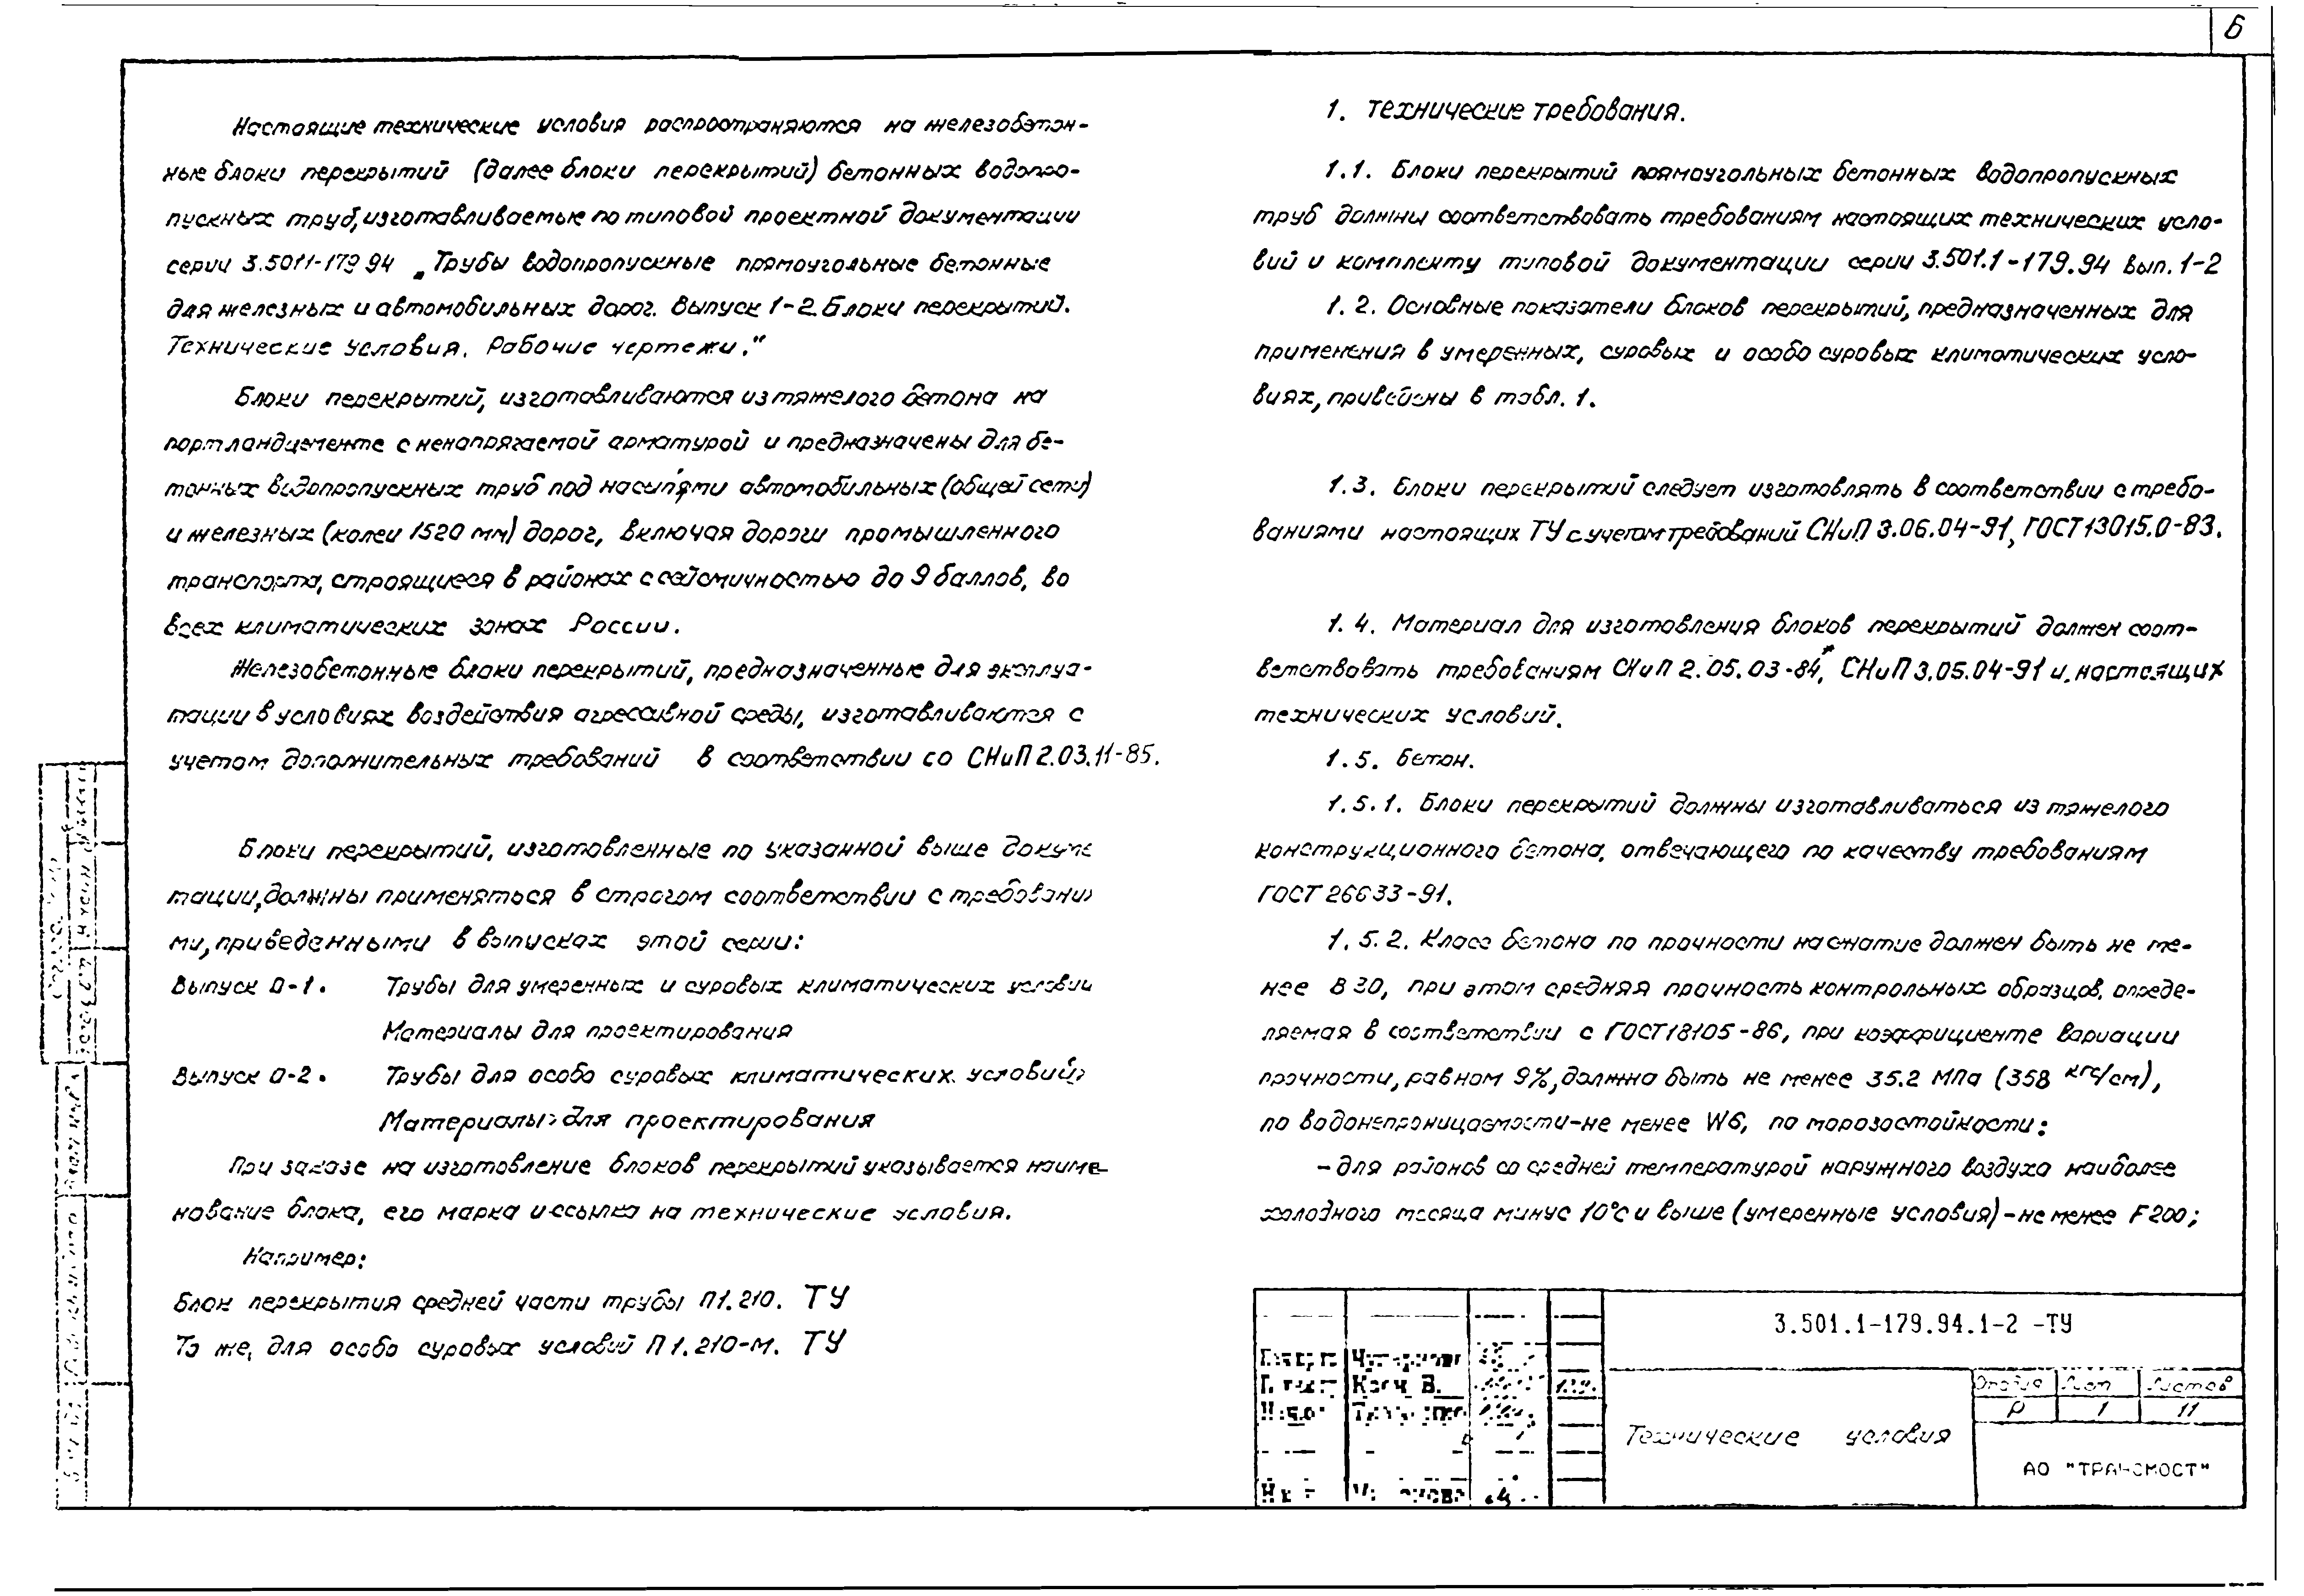 6
Настоящие технические условия распространяются на железобетон-
ные блоки перекрытий (далее блоки перекрытий) бетонных водопро-
пускных труб, изготавливаемые по типовой проектной документации
серии 3.5011-179 94 „Трубы водопропускные прямоугольные бетонные
для железных и автомобильных дорог. Выпуск 1-2. Блоки перекрытий.
Технические условия. Рабочие чертежи."
Блоки перекрытий, изготавливаются из тяжелого бетона на
портландцементе с ненапрягаемой арматурой и предназначены для бе-
тонных водопропускных труб под насыпями автомобильных (общей сети)
и железных (колеи 1520 мм) дорог, включая дороги промышленного
транспорта, строящиеся в районах с сейсмичностью до 9 баллов, во
всех климатических зонах России.
Железобетонные блоки перекрытий, предназначенные для эксплуа-
тации в условиях воздействия агрессивной среды, изготавливаются с
учетом дополнительных требований в соответствии со СНиП 2.03.11-85.
Блоки перекрытий, изготовленные по указанной выше
тации, должны применяться в строгом соответствии с
ми, приведенными в выпусках этой серии:
Выпуск 0-1. Трубы для умеренных и суровых климатических условий
Материалы для проектирования
Выпуск 0-2. Трубы для особо суровых климатических условий
Материалы для проектирования
При заказе на изготовление блоков перекрытий указывается наиме-
нование блока, его марка и ссылка на технические условия.
Например:
Блок перекрытия средней части трубы П1.210. ТУ
То же, для особо суровых условий П1.210-М. ТУ
1. Технические требования.
1.1. Блоки перекрытий прямоугольных бетонных водопропускных
труб должны соответствовать требованиям настоящих технических усло-
вий и комплекту типовой документации серии 3.501.1-179.94 вып. 1-2
1.2. Основные показатели блоков перекрытий, предназначенных для
применения в умеренных, суровых и особо суровых климатических усло-
виях, приведены в табл. 1.
1.3. Блоки перекрытий следует изготовлять в соответствии с требо-
ваниями настоящих ТУ с учетом требований СНиП 3.06.04-91, ГОСТ 13015.0-83.
1.4. Материал для изготовления блоков перекрытий должен соот-
ветствовать требованиям СНиП 2.05.03-84*, СНиП 3.05.04-91 и настоящих
технических условий.
1.5. Бетон.
1.5.1. Блоки перекрытий должны изготавливаться из тяжелого
конструкционного бетона, отвечающего по качеству требованиям
ГОСТ 26633-91.
1.5.2. Класс бетона по прочности на сжатие должен быть не ме-
нее В30, при этом средняя прочность контрольных образцов, опреде-
ляемая в соответствии с ГОСТ 18105-86, при коэффициенте вариации
прочности, равном 9%, должна быть не менее 35.2 МПа (358 кгс/см),
по водонепроницаемости - не менее W6, по морозостойкости:
- для районов со средней температурой наружного воздуха наиболее
холодного месяца минус 10°С и выше (умеренные условия) - не менее F200;
3.501.1-179.94.1-2 -ТУ
Технические условия
Стадия Лист Листов
Р 1 11
АО "ТРАНСМОСТ"